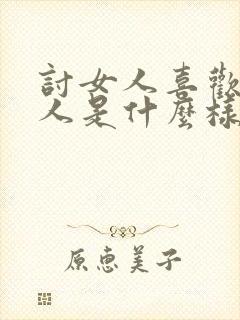 討女人喜歡
人是什麼樣
原惠美子